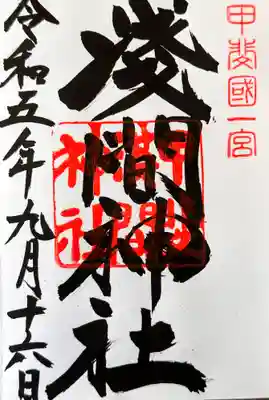 甲斐國一宮
淺間神社
令和五年九月十六日